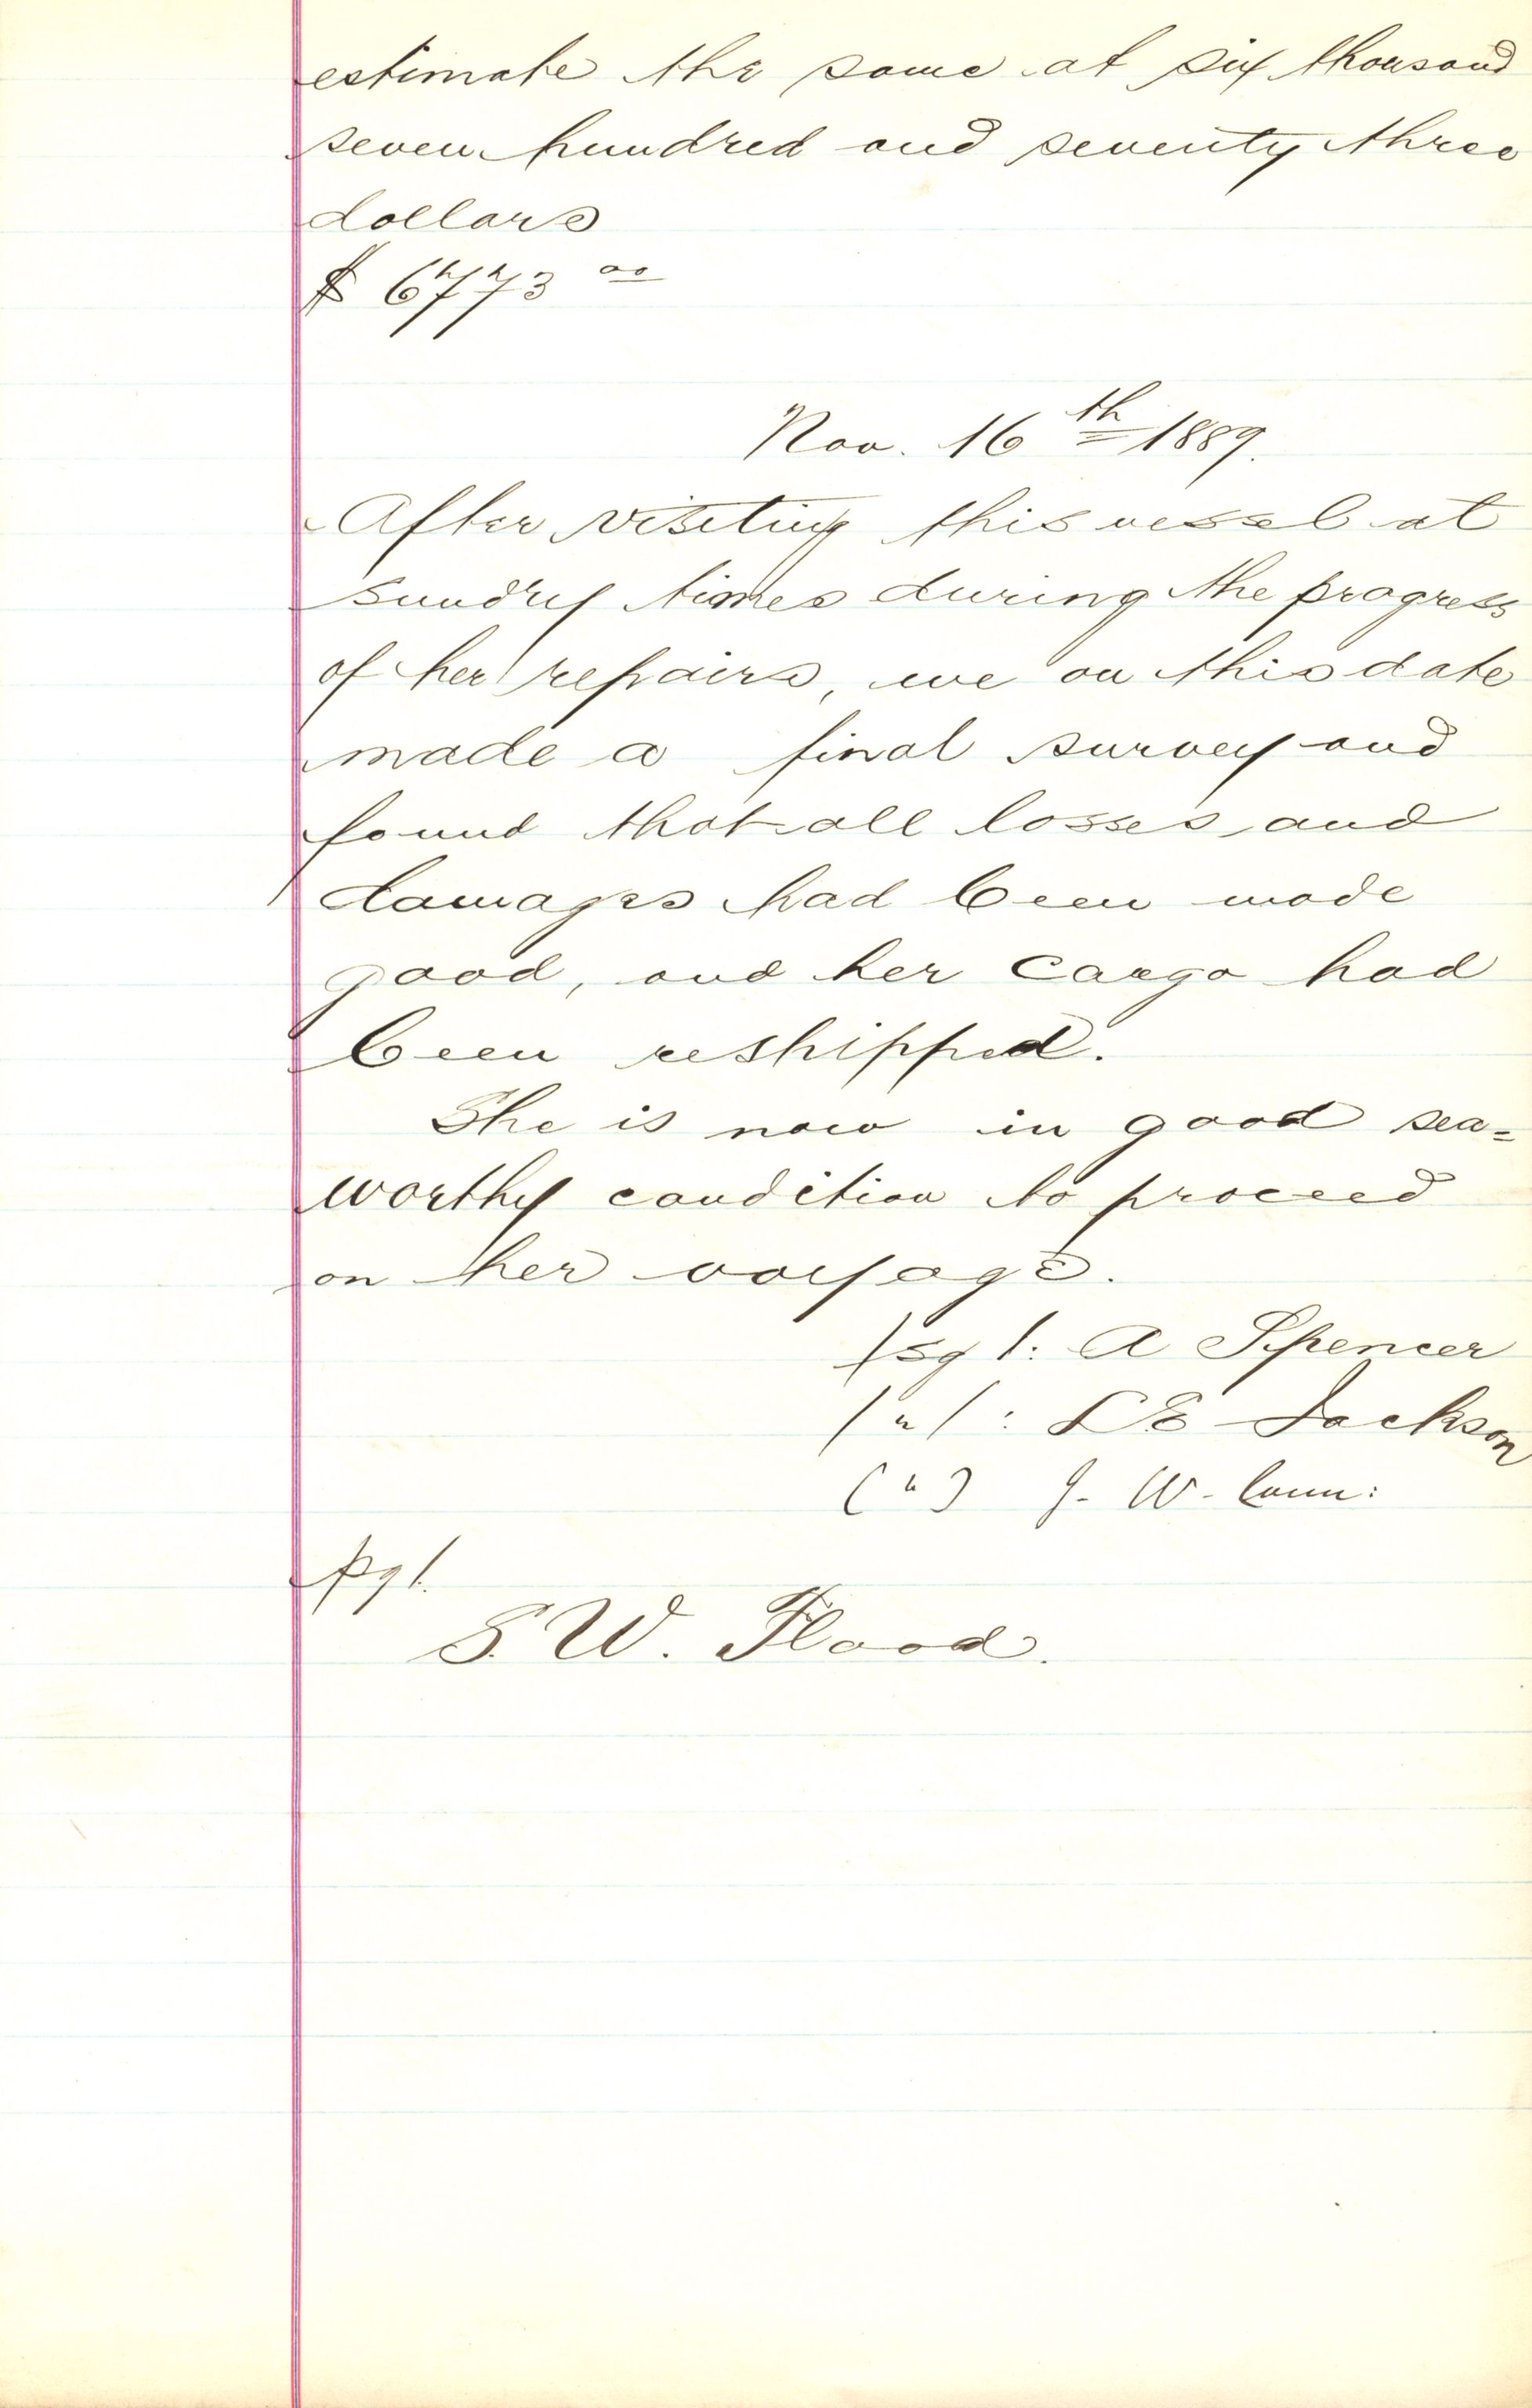 estimate the same at six thousand
seven hundred and seventy three
dollars
$ 6773 00
Nov. 16th 1889.
After visiting this vessel at
sundry times during the progress
of her repairs, we on this date
made a final survey and
found that all losses and
damages had been made
good, and her cargo had
been reshipped.
She is now in good sea=
worthy condition to proceed
on her voyage.
/sg/: A Spencer
/"/ : L E Jackson
(") J. W. Conn:
S. W. Flood.